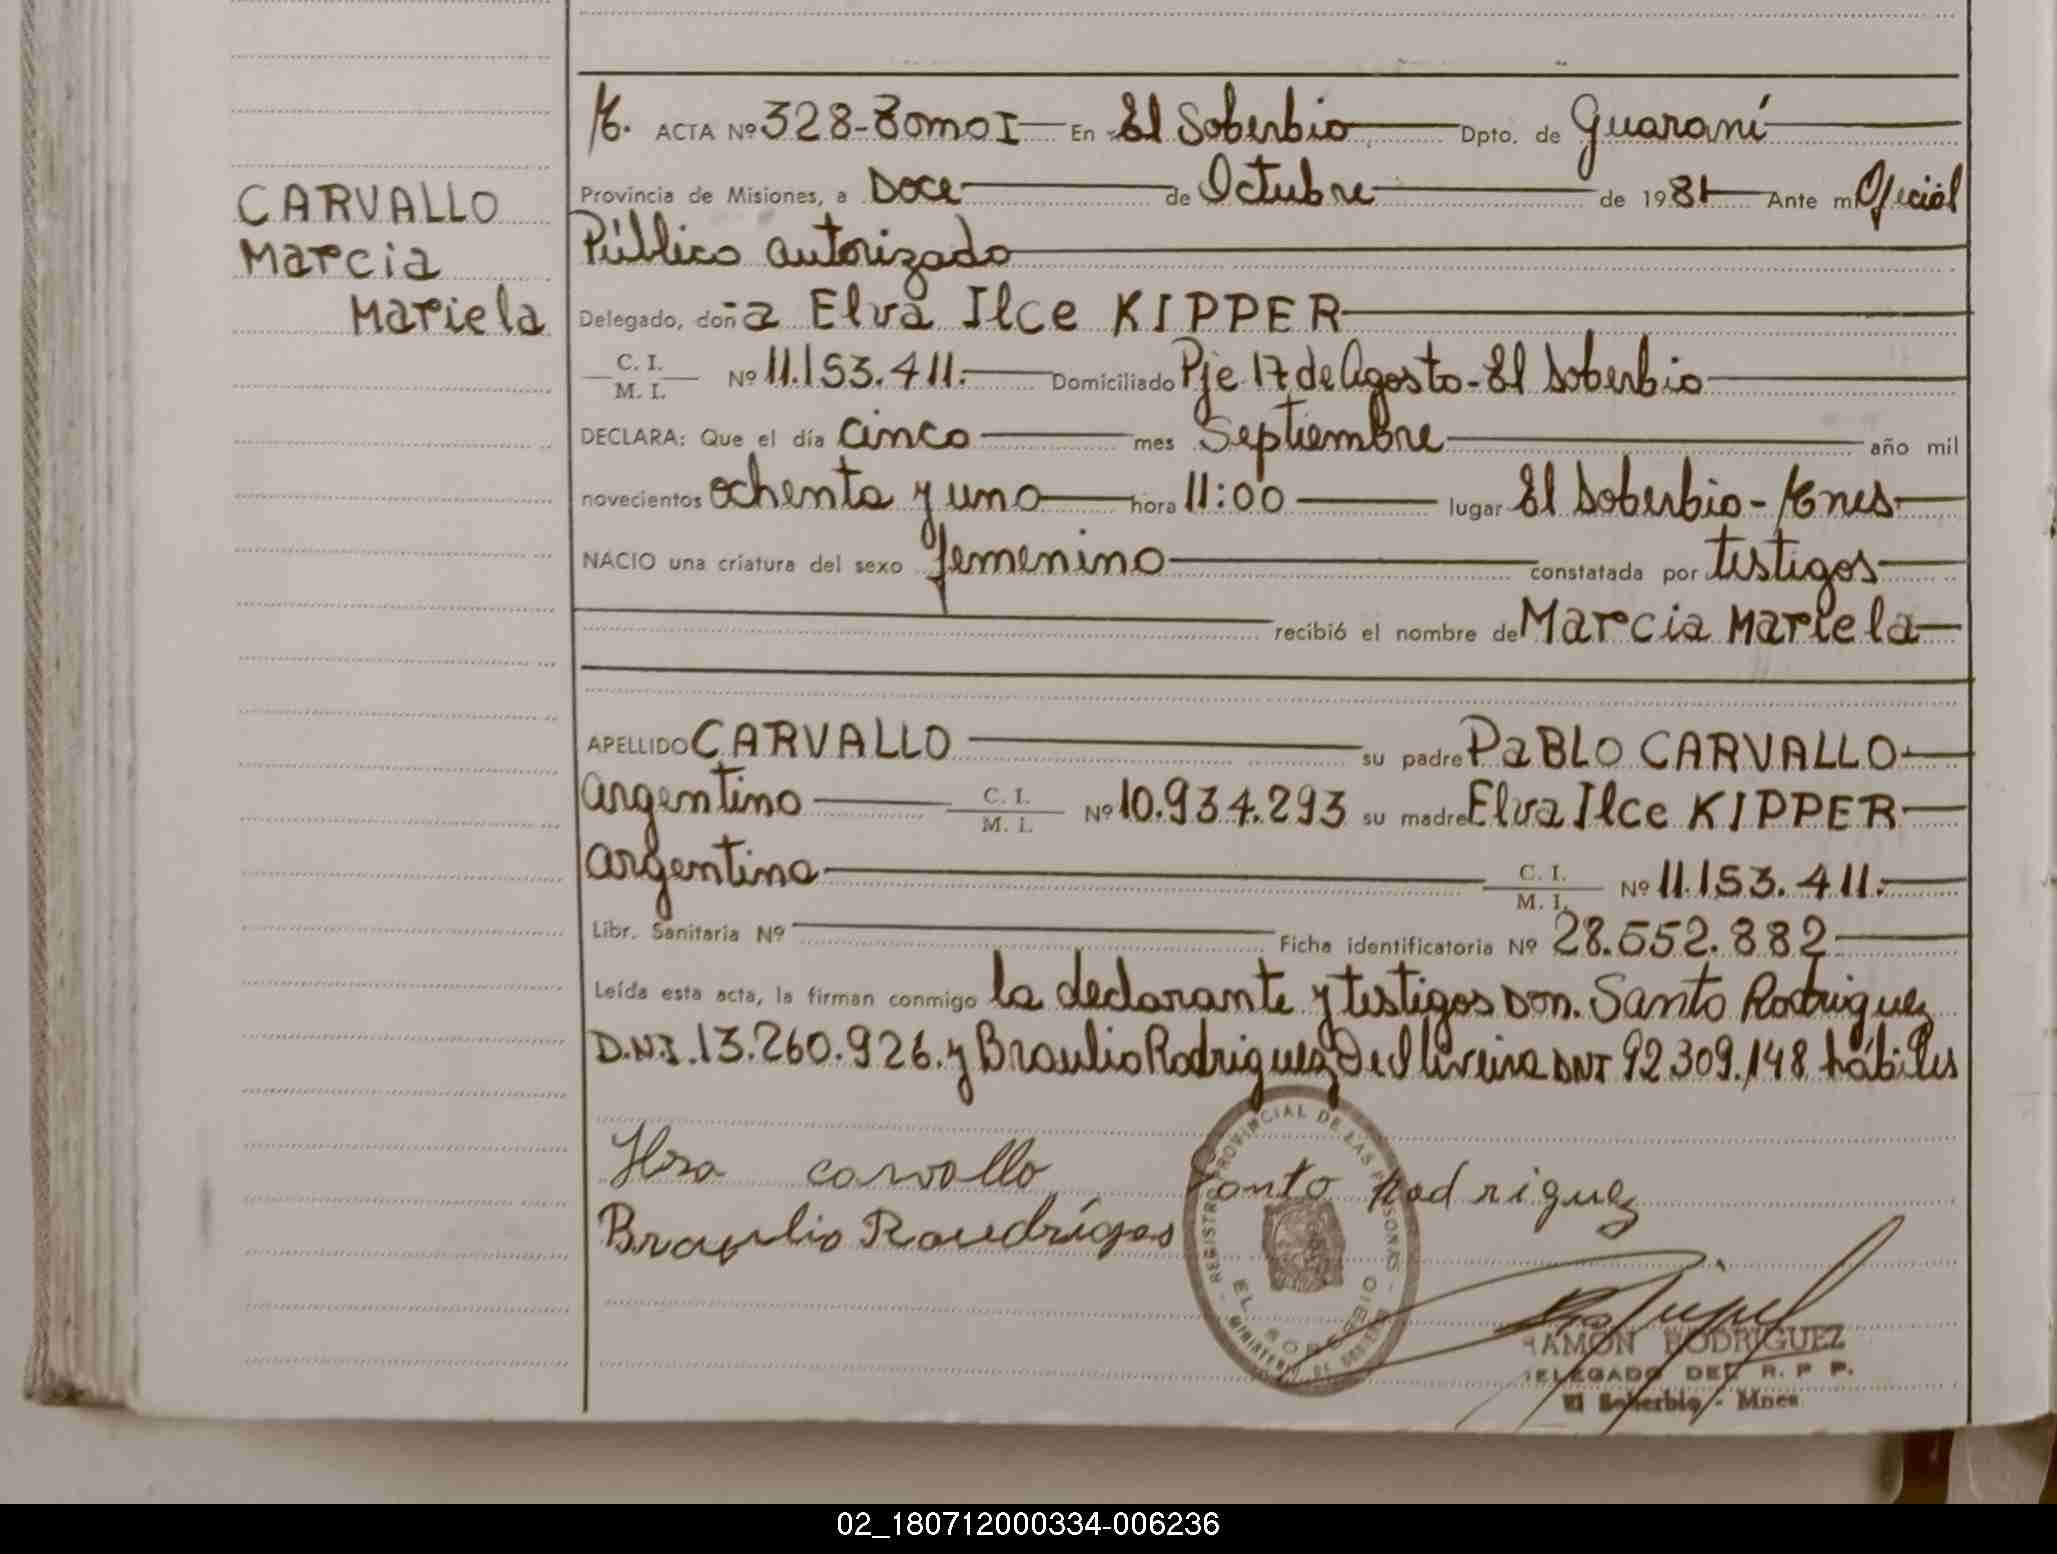 M. ACTA Nº 328-Tomo I En El Soberbio Dpto. de Guaraní
Provincia de Misiones, a Doce de Octubre de 1981 Ante mí Oficial
Público autorizado
Delegado, doña Elva Ilce KIPPER
C. I.
M. I. Nº 11.153.411. Domiciliado Pje 17 de Agosto-El Soberbio
DECLARA: Que el día cinco mes Septiembre año mil
novecientos ochenta y uno hora 11:00 lugar El Soberbio-Mnes
NACIO una criatura del sexo femenino constatada por testigos
recibió el nombre de Marcia Mariela
APELLIDO CARVALLO su padre PaBLO CARVALLO
argentino C. I. M. I. Nº 10.934.293 su madre Elva Ilce KIPPER
argentina C. I. M. I. Nº 11.153.411.
Libr. Sanitaria Nº Ficha identificatoria Nº 28.552.882
Leída esta acta, la firman conmigo la declarante y testigos Don. Santo Rodriguez
D.N.I. 13.260.926. y Braulio Rodriguez De Oliveira DNI 92.309.148 hábiles
carvallo Santo Rodriguez
Braulio
REGISTRO PROVINCIAL DE LAS PERSONAS
EL SOBERBIO
MINISTERIO DE GOBIERNO
RAMON RODRIGUEZ
DELEGADO DEL R. P P.
El Soberbio - Mnes
CARVALLO
Marcia
Mariela
02_180712000334-006236